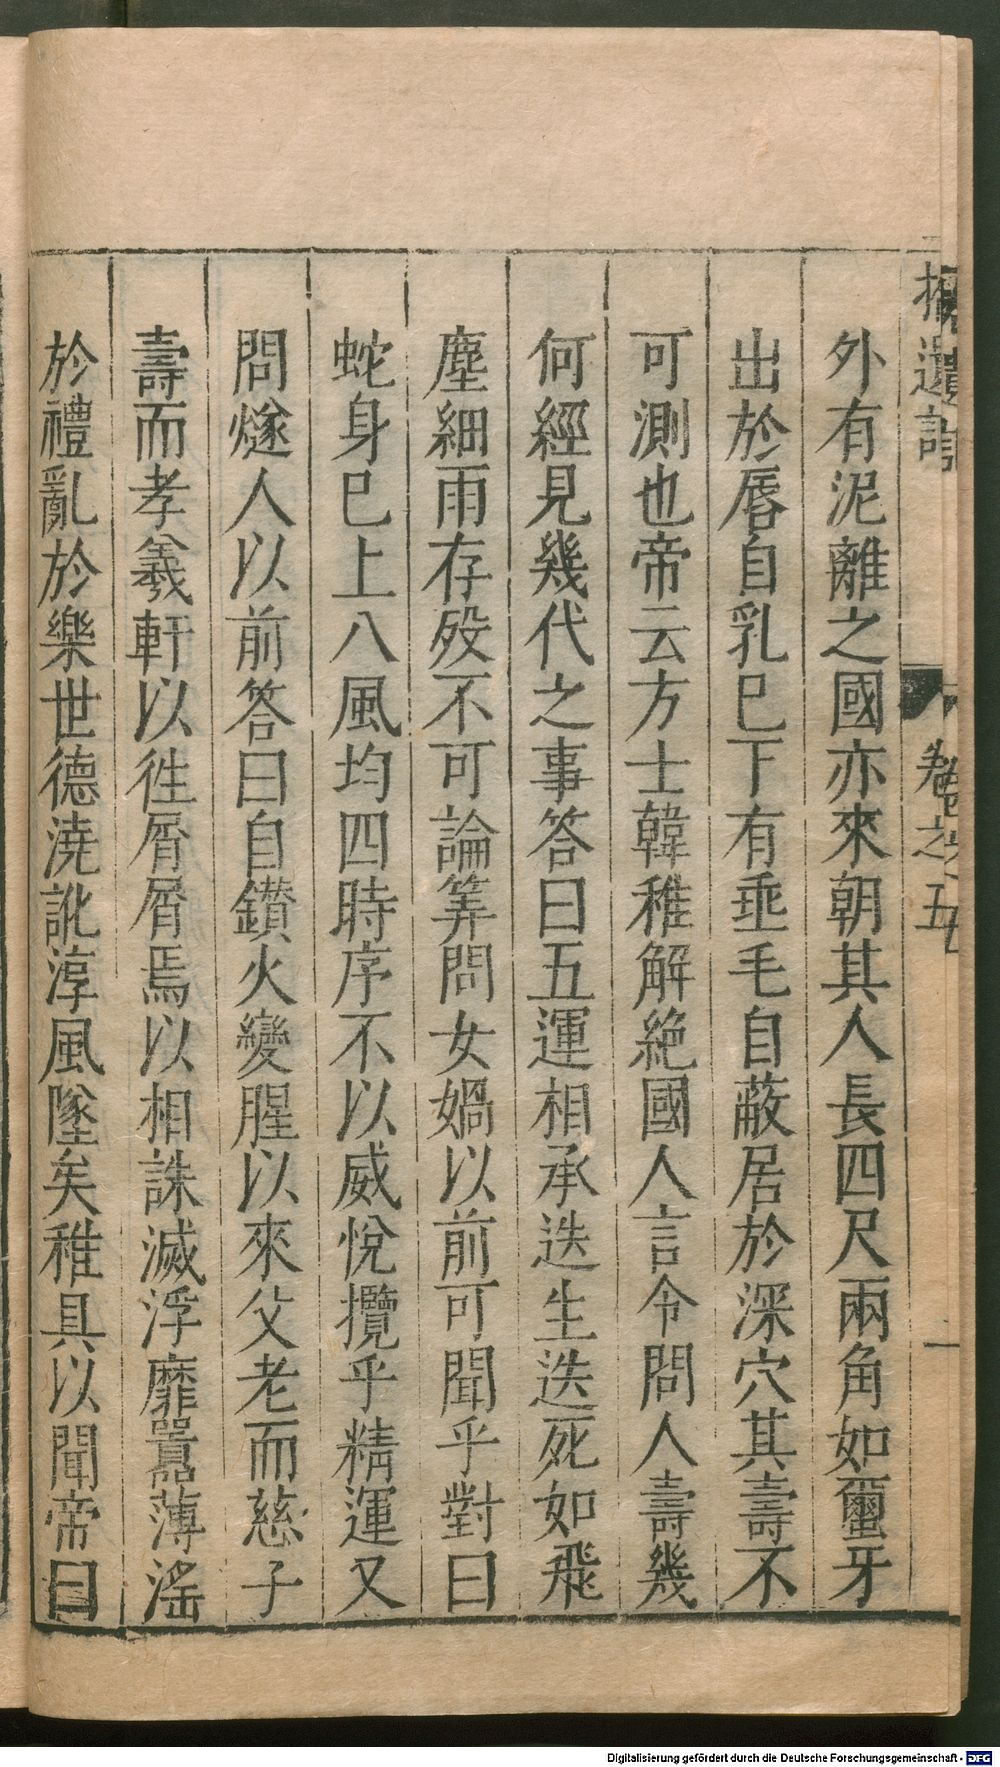 拾遺記
卷之五
一
外有泥離之國亦來朝其人長四尺兩角如䖉牙
出於唇自乳巳下有垂毛自蔽居於深穴其壽不
可測也帝云方士韓稚解絕國人言令問人壽幾
何經見幾代之事答曰五運相承迭生迭死如飛
塵細雨存歿不可論筭問女媧以前可聞乎對曰
蛇身巳上八風均四時序不以威悅攬乎精運又
問燧人以前答曰自鑽火變腥以來父老而慈子
壽而孝羲軒以徃屑屑焉以相誅滅浮靡囂薄滛
於禮亂於樂世德澆訛淳風墜矣稚具以聞帝曰
Digitalisierung gefördert durch die Deutsche Forschungsgemeinschaft - DFG